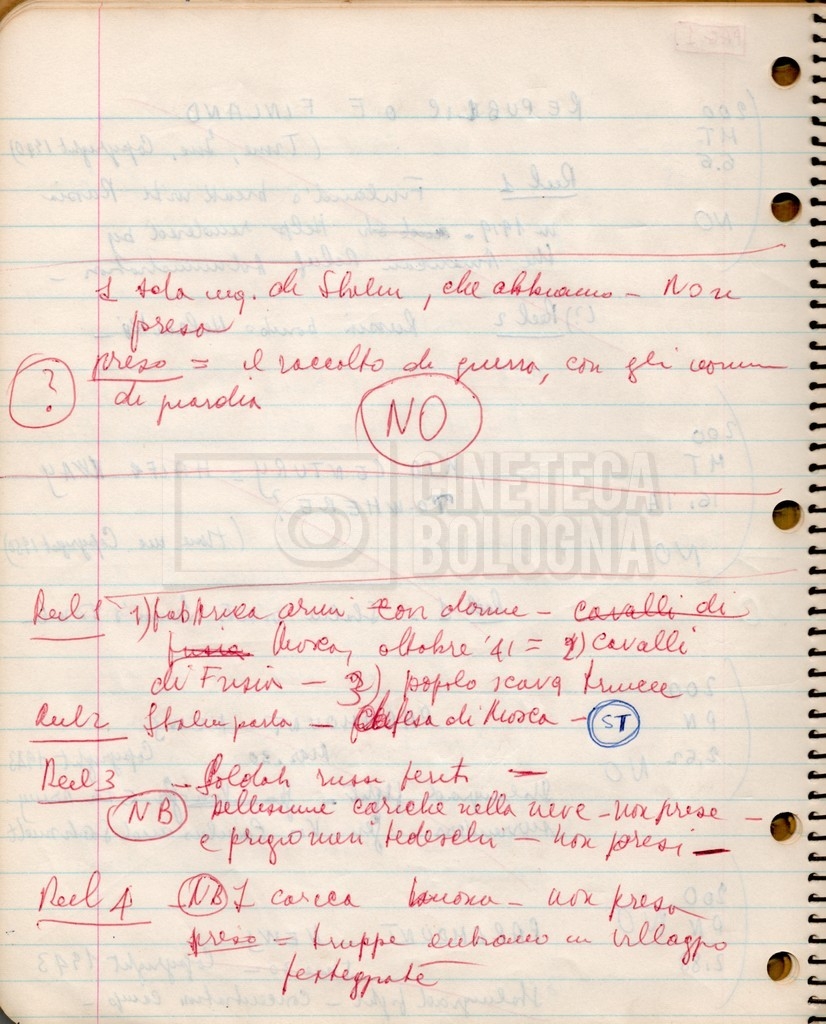 1 sola inq. di Stalin, che abbiamo – Non
presa
preso = il raccolto di guerra, con gli uomini
? di guardia
NO
CINETECA
BOLOGNA
Reel 1 1) fabbrica armi con donne – cavalli di
Frisia Mosca, ottobre '41 = 2) cavalli
di Frisia – 3) popolo scava trincee
Reel 2 Stalin parla – difesa di Mosca – ST
Reel 3 – Soldati russi feriti –
NB bellissime cariche nella neve – non prese –
e prigionieri tedeschi – non presi –
Reel 4 NB 1 carica buona – non presa
preso = truppe entrano in villaggio
festeggiate